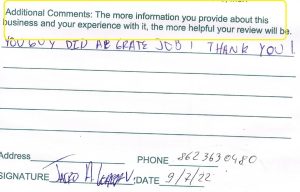 Additional Comments: The more information you provide about this
business and your experience with it, the more helpful your review will be.
YOU GUY DID AB GRATE JOB! THANK YOU!
Address
PHONE 8623630480
SIGNATURE DATE 9/7/22